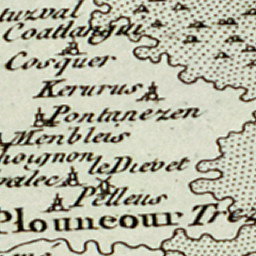 tuzval
Coatlangui
Cosquer
Kerurus
Pontanezen
Menbleis
hoignon
le Dievet
valec
Pelleus
Plouncour Trez